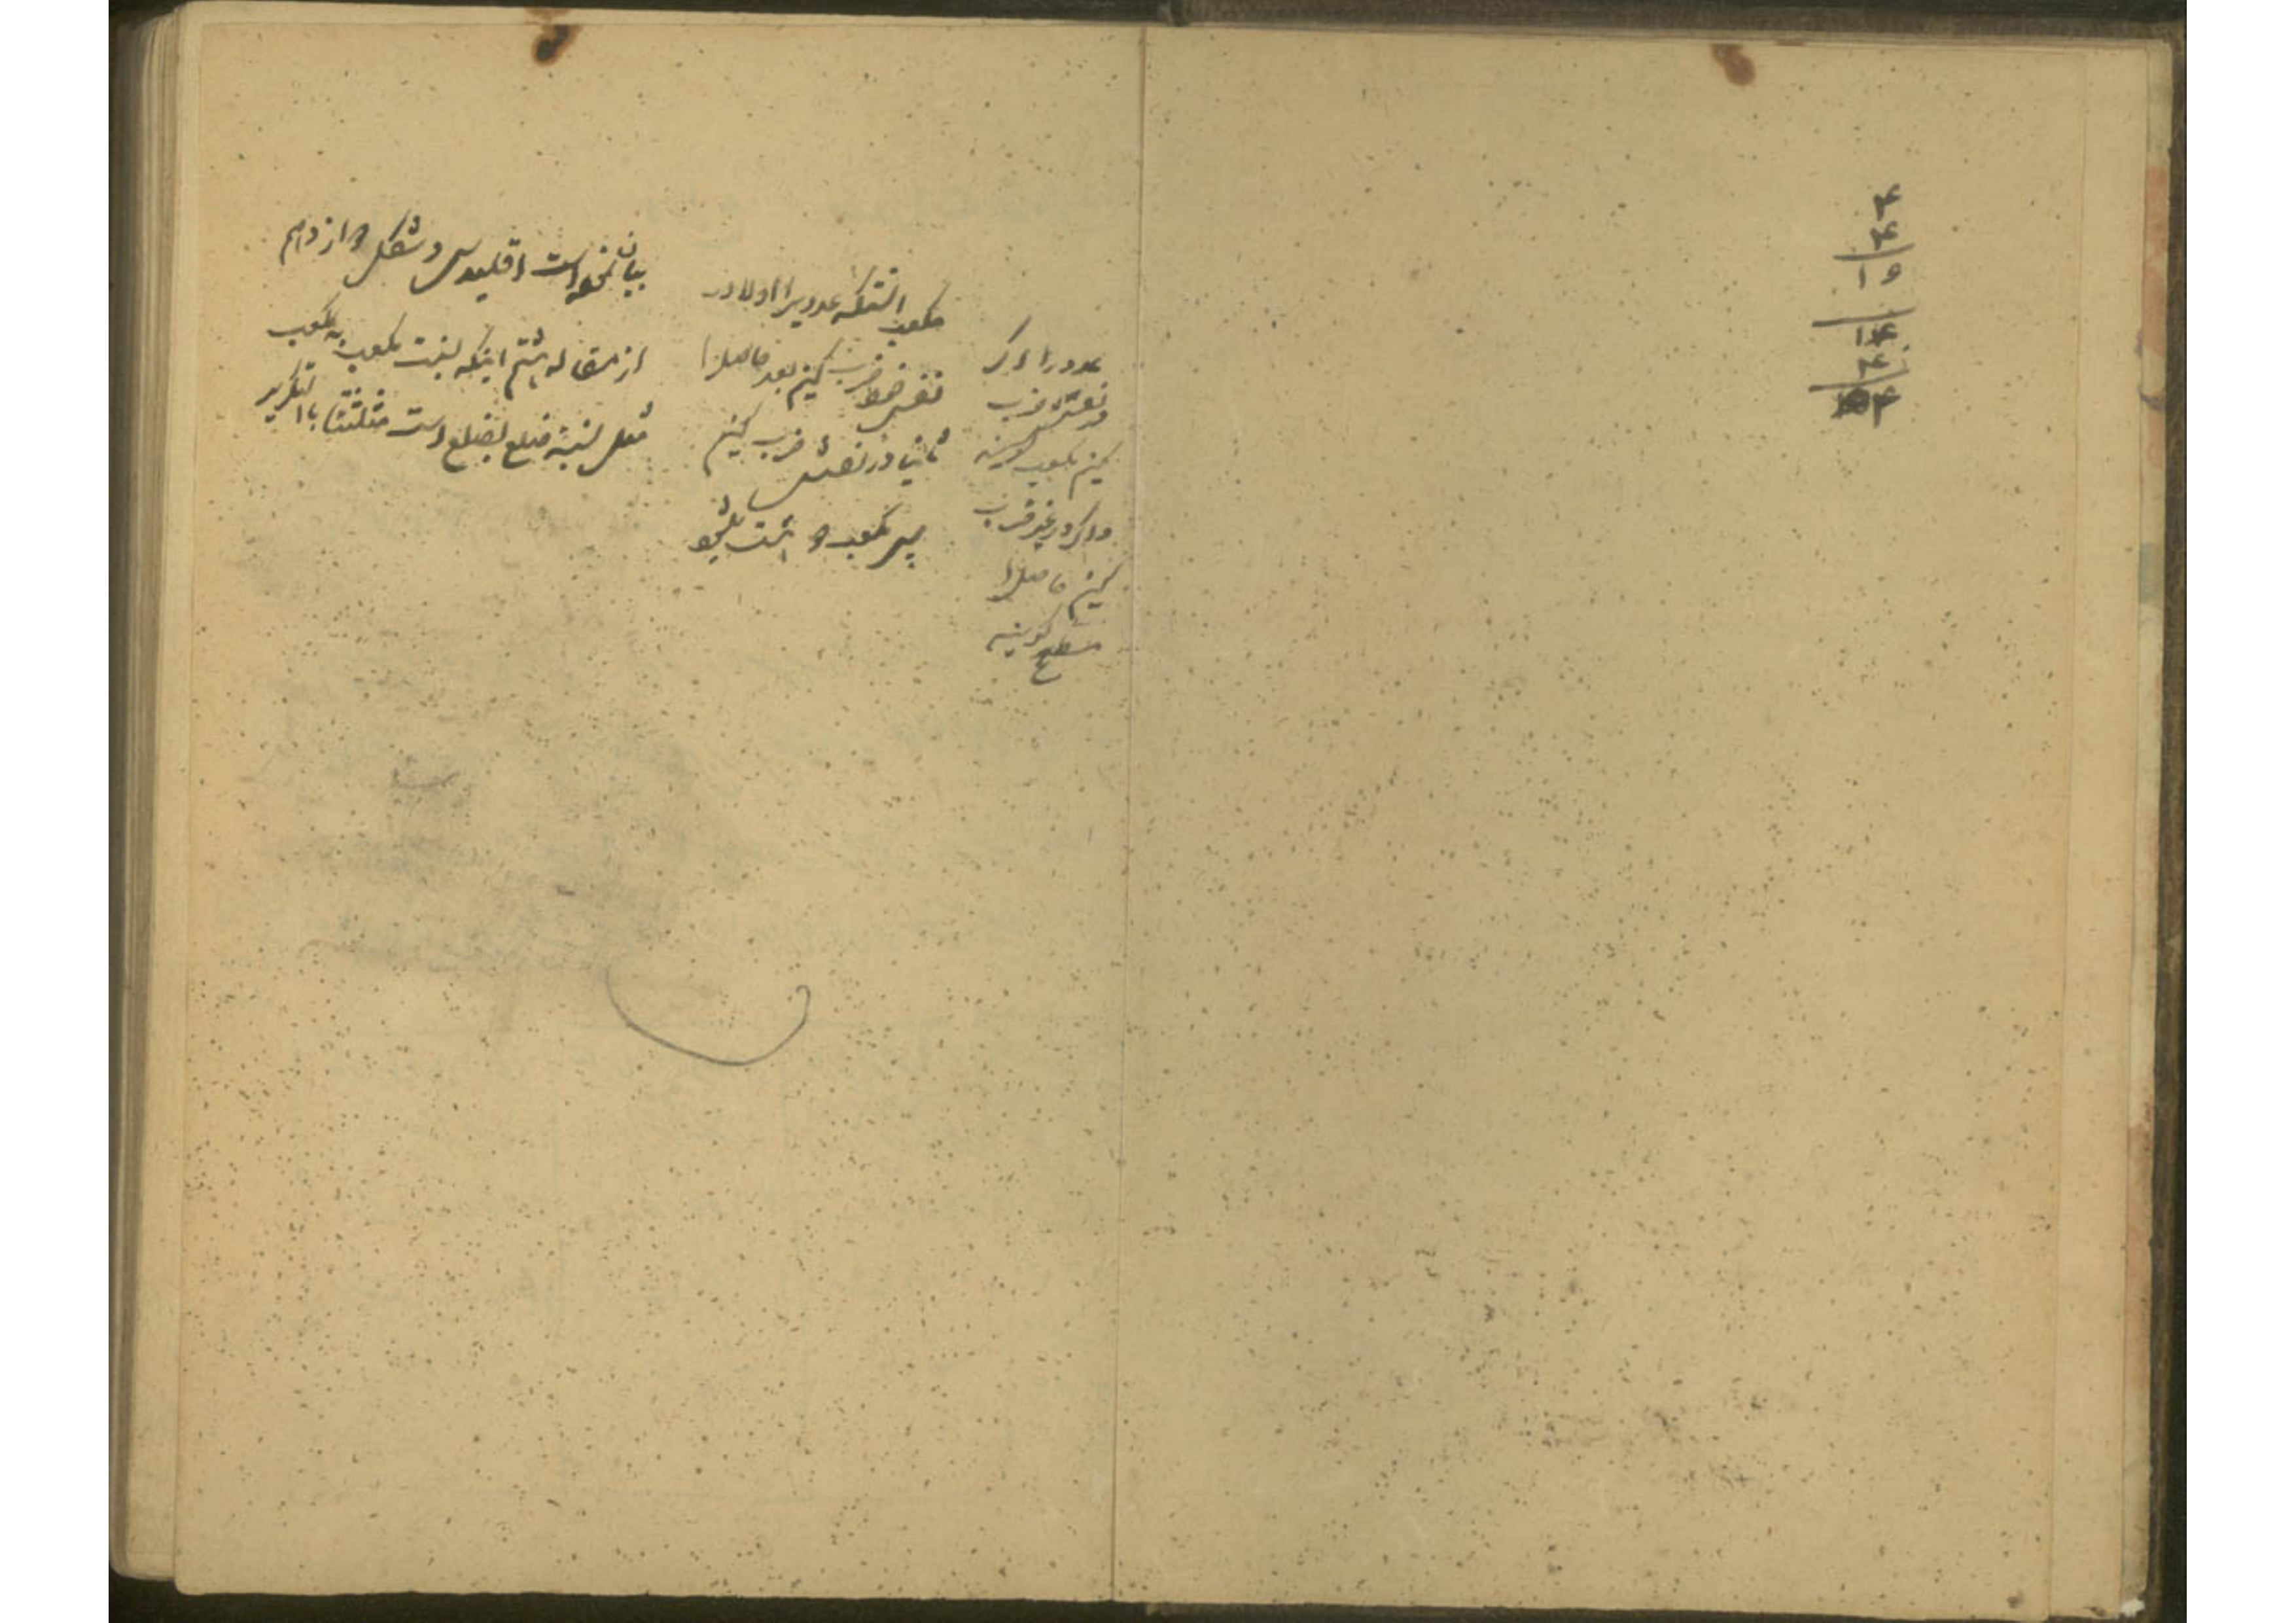 ۴
۴
۱۶
۱۴
۴
۴
عدد را اگر
در نفسش ضرب
کنیم مکعب گویند
و اگر در غیر ضرب
کنیم حاصل را
مسطح گویند
مکعب آنستکه عددیرا اولا در
نفس خود ضرب کنیم بعد حاصل را
ثانیا در نفسش ضرب کنیم
پس مکعب
بیان نموده است اقلیدس در شکل دوازدهم
از مقاله هشتم اینکه نسبت مکعب به مکعب
مثل نسبة ضلع بضلع است مثلثتا بالتکریر